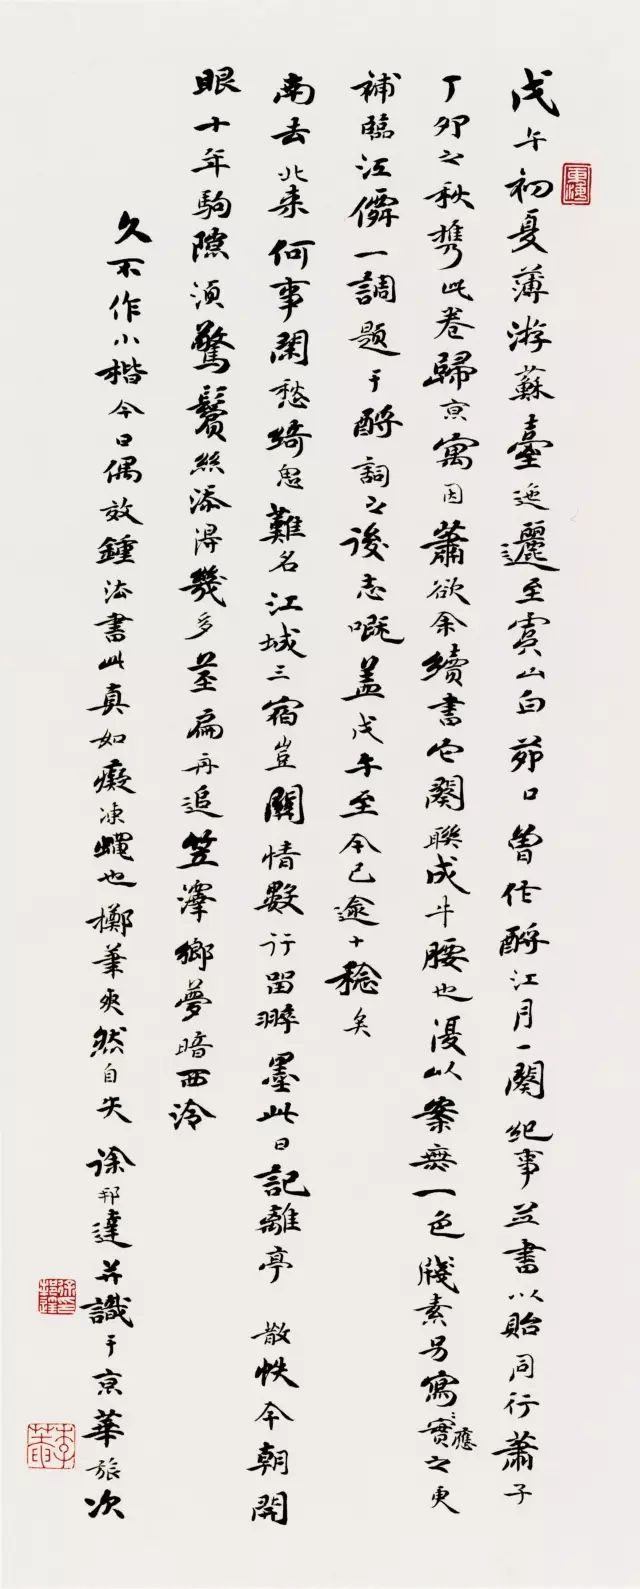 戊午初夏薄游蘇臺迤邐至虞山白茆口曾作酹江月一闋紀事並書以貽同行蕭子
丁卯之秋攜此卷歸京寓因蕭欲余續書它闋聯成牛腰也漫以案無一色牋素另寫實之更
應
補臨江僊一調題于酹詞之後志嘅盖戊午至今已逾十稔矣
南去北来何事閑愁綺思難名江城三宿豈關情數行留醉墨此日記離亭 散帙今朝開
眼十年駒隙湏驚鬢絲添得幾多莖扁舟追笠澤鄉夢暗西泠
久不作小楷今日偶效鍾法書此真如癡凍蠅也擲筆爽然自失 徐邦達并識于京華旅次